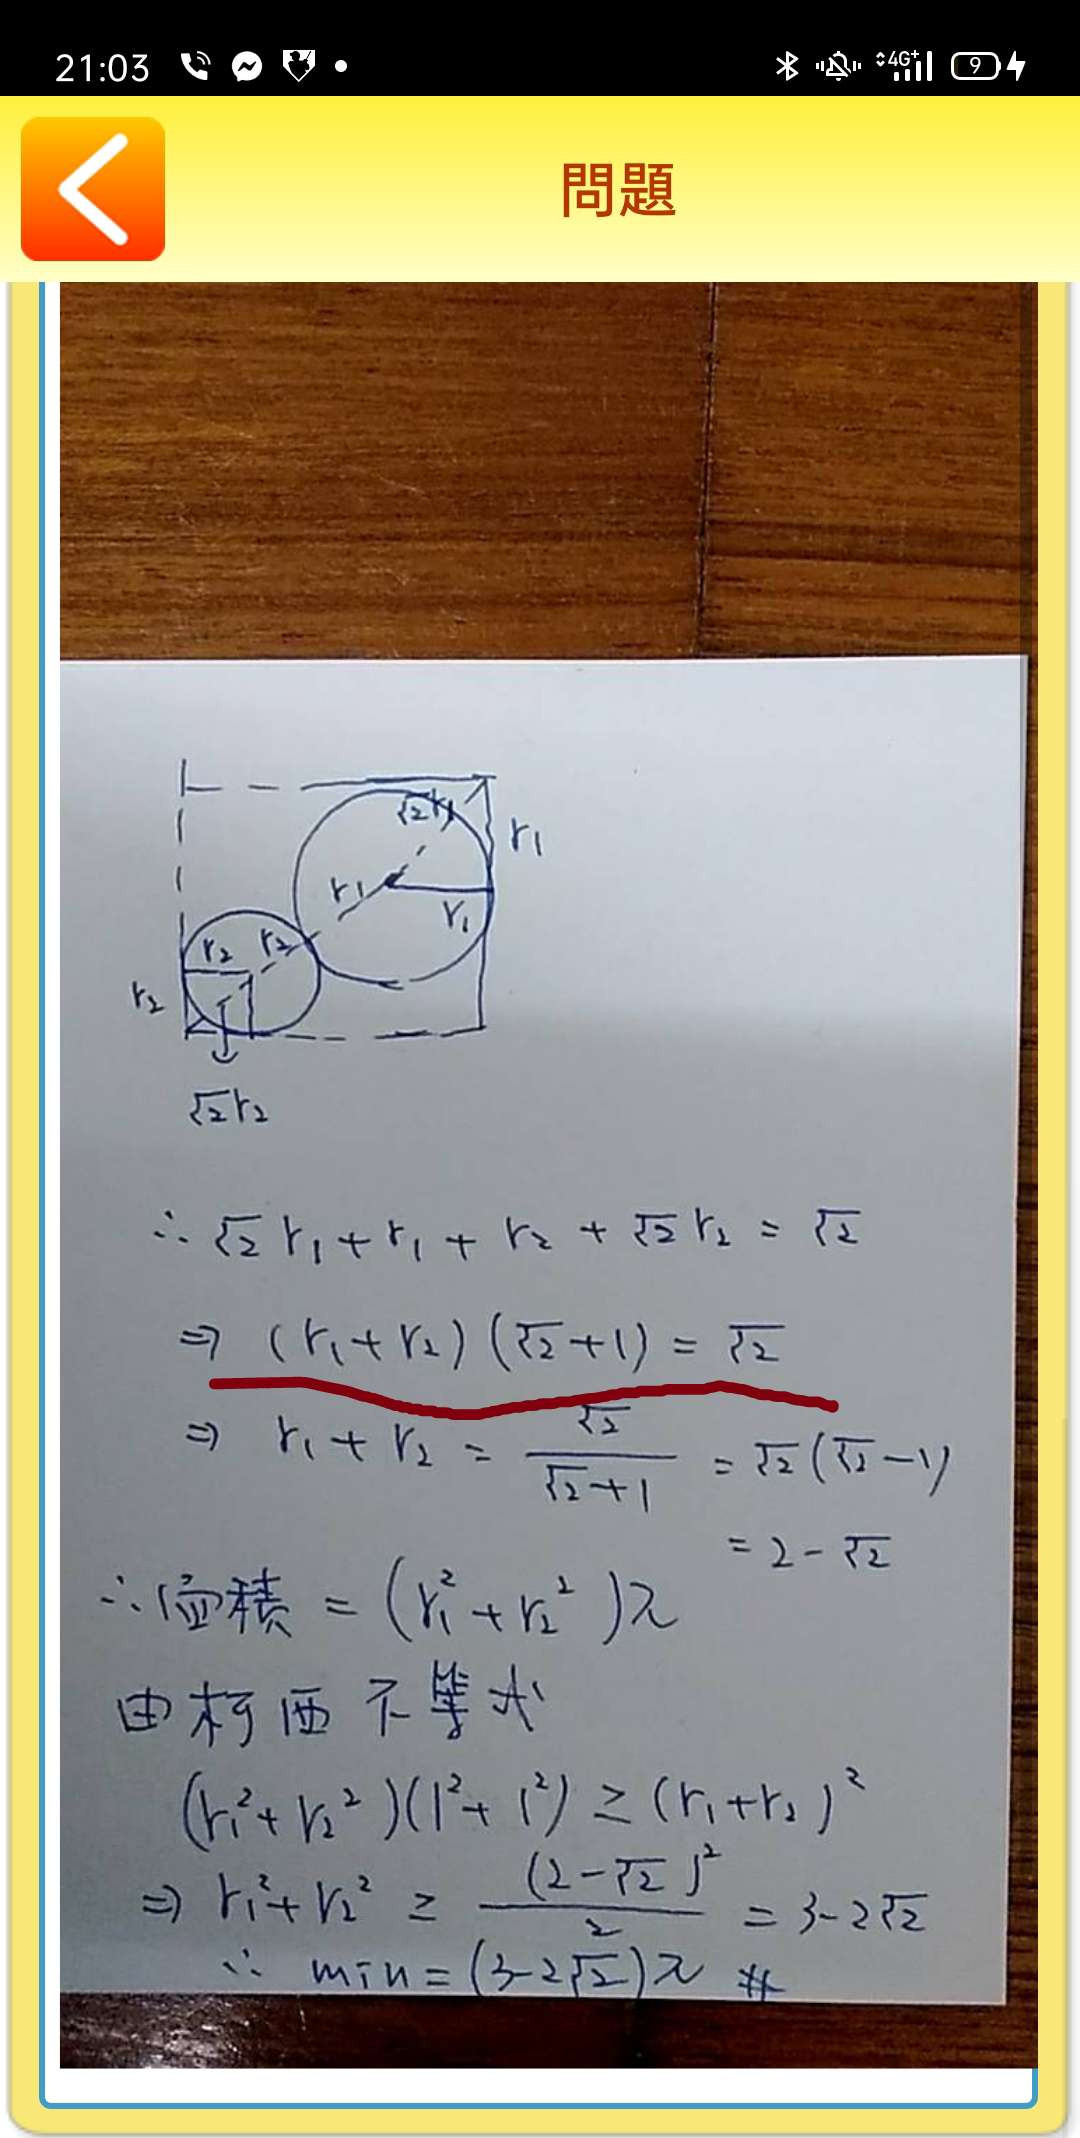 21:03
4G+
9
問題
√2r₁
r₁
r₁
r₁
r₂ r₂
r₂
√2r₂
∴ √2 r₁ + r₁ + r₂ + √2 r₂ = √2
⇒ (r₁ + r₂) (√2 + 1) = √2
⇒ r₁ + r₂ = √2 / (√2 + 1) = √2 (√2 - 1)
= 2 - √2
∴ 面積 = (r₁² + r₂²)π
由柯西不等式
(r₁² + r₂²)(1² + 1²) ≥ (r₁ + r₂)²
⇒ r₁² + r₂² ≥ (2 - √2)² / 2 = 3 - 2√2
∴ min = (3 - 2√2)π #